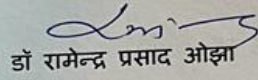 डॉ रामेन्द्र प्रसाद ओझा